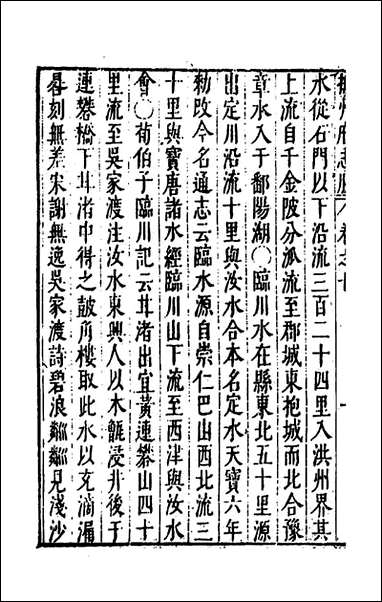 撫州府志 卷之
水從石門以下沿流三百二十四里入洪州界其
上流自千金陂分派流至郡城東抱城而北合豫
章水入于鄱陽湖〇臨川水在縣東北五十里源
出定川沿流十里與汝水合本名定水天寶六年
勑改今名通志云臨水源自崇仁巴山西北流三
十里與寶唐諸水經臨川山下流至西津與汝水
會〇荀伯子臨川記云苴渚出宜黃連攀山四十
里流至吳家渡注汝水東興人以木甑浸井後于
連攀橋下苴渚中得之鼓角樓取此水以充滴漏
晷刻無差宋謝無逸吳家渡詩碧浪粼粼見淺沙